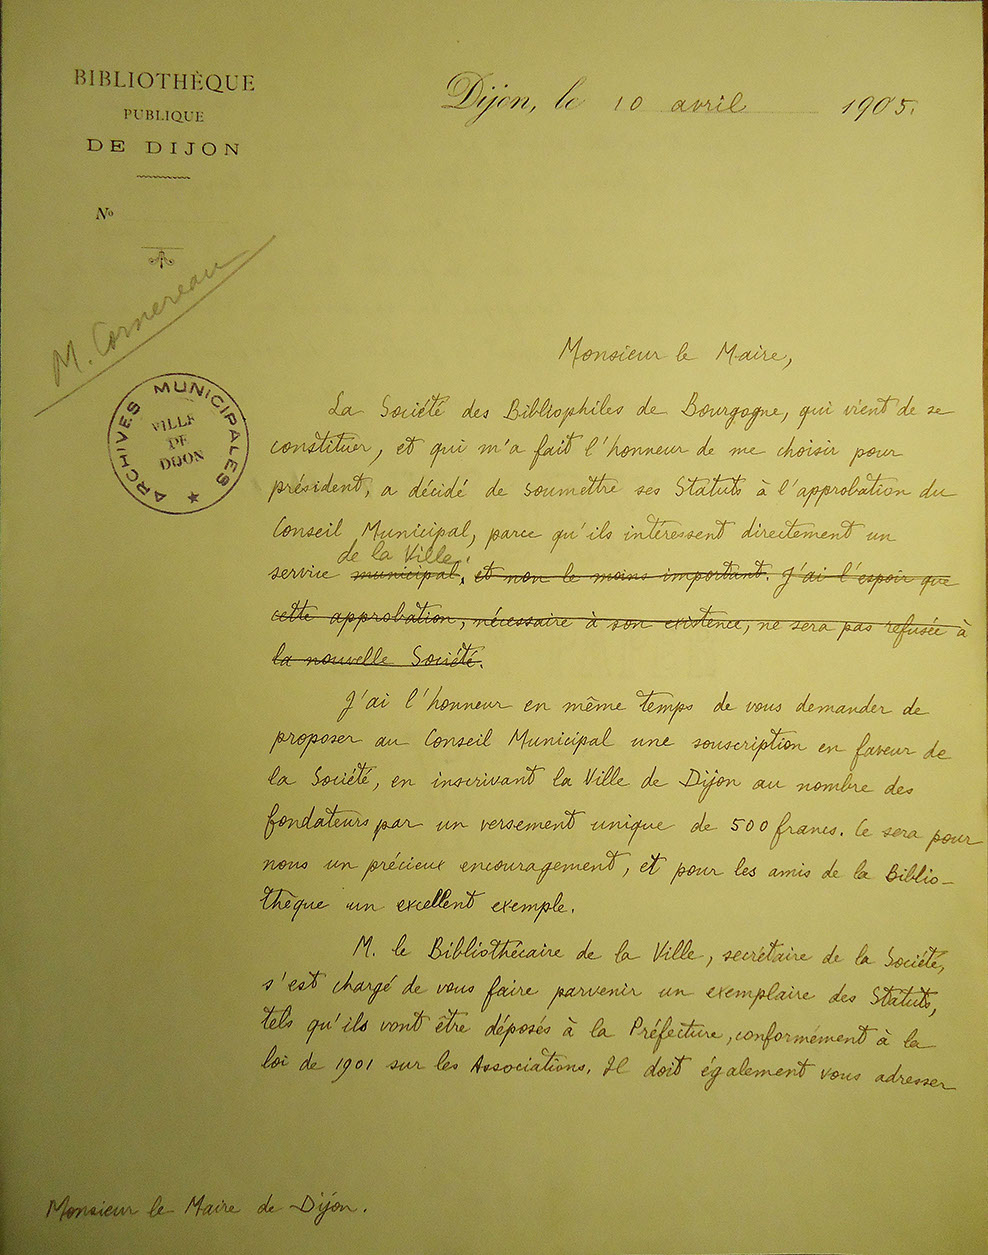 BIBLIOTHÈQUE
PUBLIQUE
DE DIJON
Dijon, le 10 avril 1905.
N°
M. Cornereau
ARCHIVES MUNICIPALES
VILLE
DE
DIJON
Monsieur le Maire,
La Société des Bibliophiles de Bourgogne, qui vient de se
constituer, et qui m'a fait l'honneur de me choisir pour
président, a décidé de soumettre ses Statuts à l'approbation du
Conseil Municipal, parce qu'ils intéressent directement un
de la Ville.
service municipal, et non le moins important. J'ai l'espoir que
cette approbation, nécessaire à son existence, ne sera pas refusée à
la nouvelle Société.
J'ai l'honneur en même temps de vous demander de
proposer au Conseil Municipal une souscription en faveur de
la Société, en inscrivant la Ville de Dijon au nombre des
fondateurs par un versement unique de 500 francs. Ce sera pour
nous un précieux encouragement, et pour les amis de la Biblio-
thèque un excellent exemple.
M. le Bibliothécaire de la Ville, secrétaire de la Société,
s'est chargé de vous faire parvenir un exemplaire des Statuts,
tels qu'ils vont être déposés à la Préfecture, conformément à la
loi de 1901 sur les Associations. Il doit également vous adresser
Monsieur le Maire de Dijon.